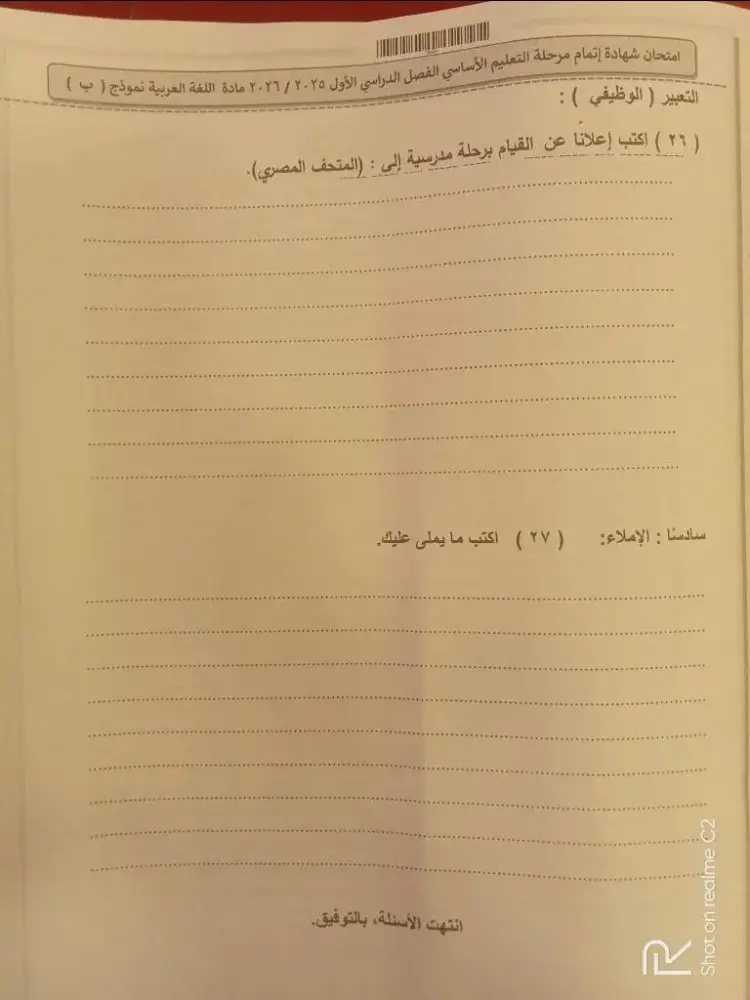 امتحان شهادة إتمام مرحلة التعليم الأساسي الفصل الدراسي الأول ٢٠٢٥ / ٢٠٢٦ مادة اللغة العربية نموذج ( ب )
التعبير ( الوظيفي ) :
( ٢٦ ) اكتب إعلانًا عن القيام برحلة مدرسية إلى : (المتحف المصري).
سادسًا : الإملاء: ( ٢٧ ) اكتب ما يملى عليك.
انتهت الأسئلة، بالتوفيق.
Shot on realme C2